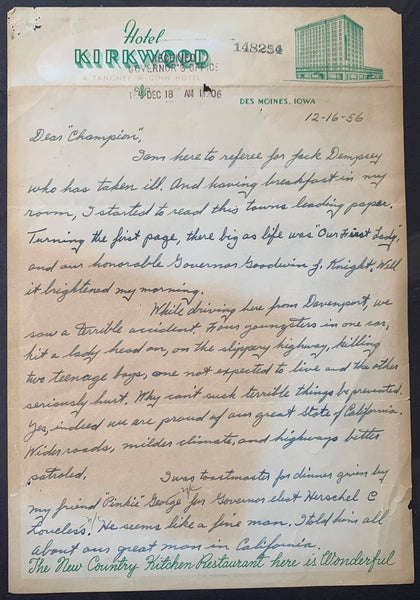 Hotel
KIRKWOOD
A TANGNEY McGINN HOTEL
RECEIVED
GOVERNOR'S OFFICE
DEC 18 AM
148254
DES MOINES, IOWA
12-16-56
Dear "Champion",
I am here to referee for Jack Dempsey
who has taken ill. And having breakfast in my
room, I started to read this towns leading paper.
Turning the first page, there big as life was "Our First Lady",
and our honorable Governor Goodwin J. Knight. Well
it brightened my morning.
While driving here from Davenport, we
saw a terrible accident. Four youngsters in one car,
hit a lady head on, on the slippery highway, killing
two teenage boys, one not expected to live and the other
seriously hurt. Why can't such terrible things be prevented.
Yes, indeed we are proud of our great State of California.
Wider roads, milder climate, and highways better
patroled.
I was toastmaster for dinner given by
my friend "Pinkie George" for Governor elect Herschel C
Loveless. He seems like a fine man. I told him all
about our great man in California.
The New Country Kitchen Restaurant here is Wonderful